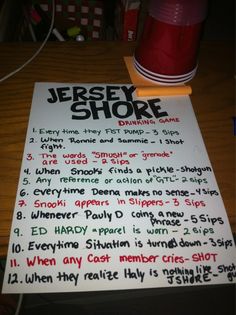 JERSEY
SHORE
DRINKING GAME
1. Every time they FIST PUMP - 3 Sips
2. When Ronnie and Sammie - 1 Shot
fight.
3. The words "SMUSH" or "grenade"
are used - 2 Sips
4. When Snooki finds a pickle - Shotgun
5. Any reference or action of "GTL" - 2 Sips
6. everytime Deena makes no sense - 4 Sips
7. Snooki appears in Slippers - 3 Sips
8. Whenever Pauly D coins a new
Phrase - 5 Sips
9. ED HARDY apparel is worn - 2 Sips
10. Everytime Situation is turned down - 3 Sips
11. When any Cast member cries - SHOT
12. When they realize Italy is nothing like
JSHORE - Shotgun